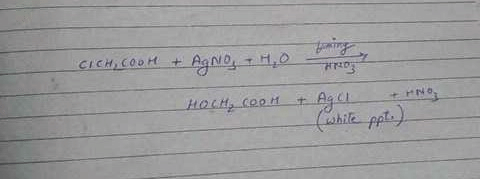 ClCH₂COOH + AgNO₃ + H₂O fuming HNO₃ →
HOCH₂COOH + AgCl + HNO₃
(white ppt.)